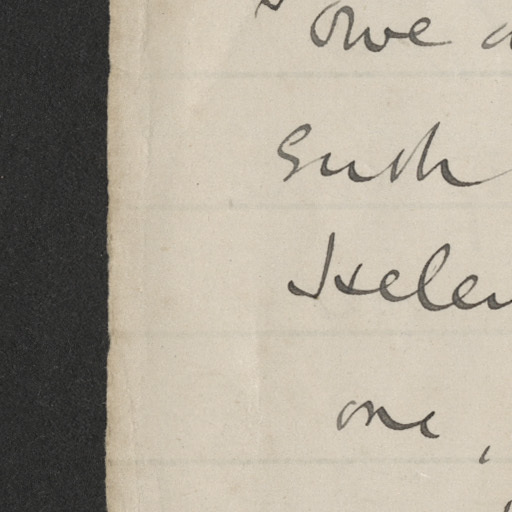 owe a
such
Helen
one,